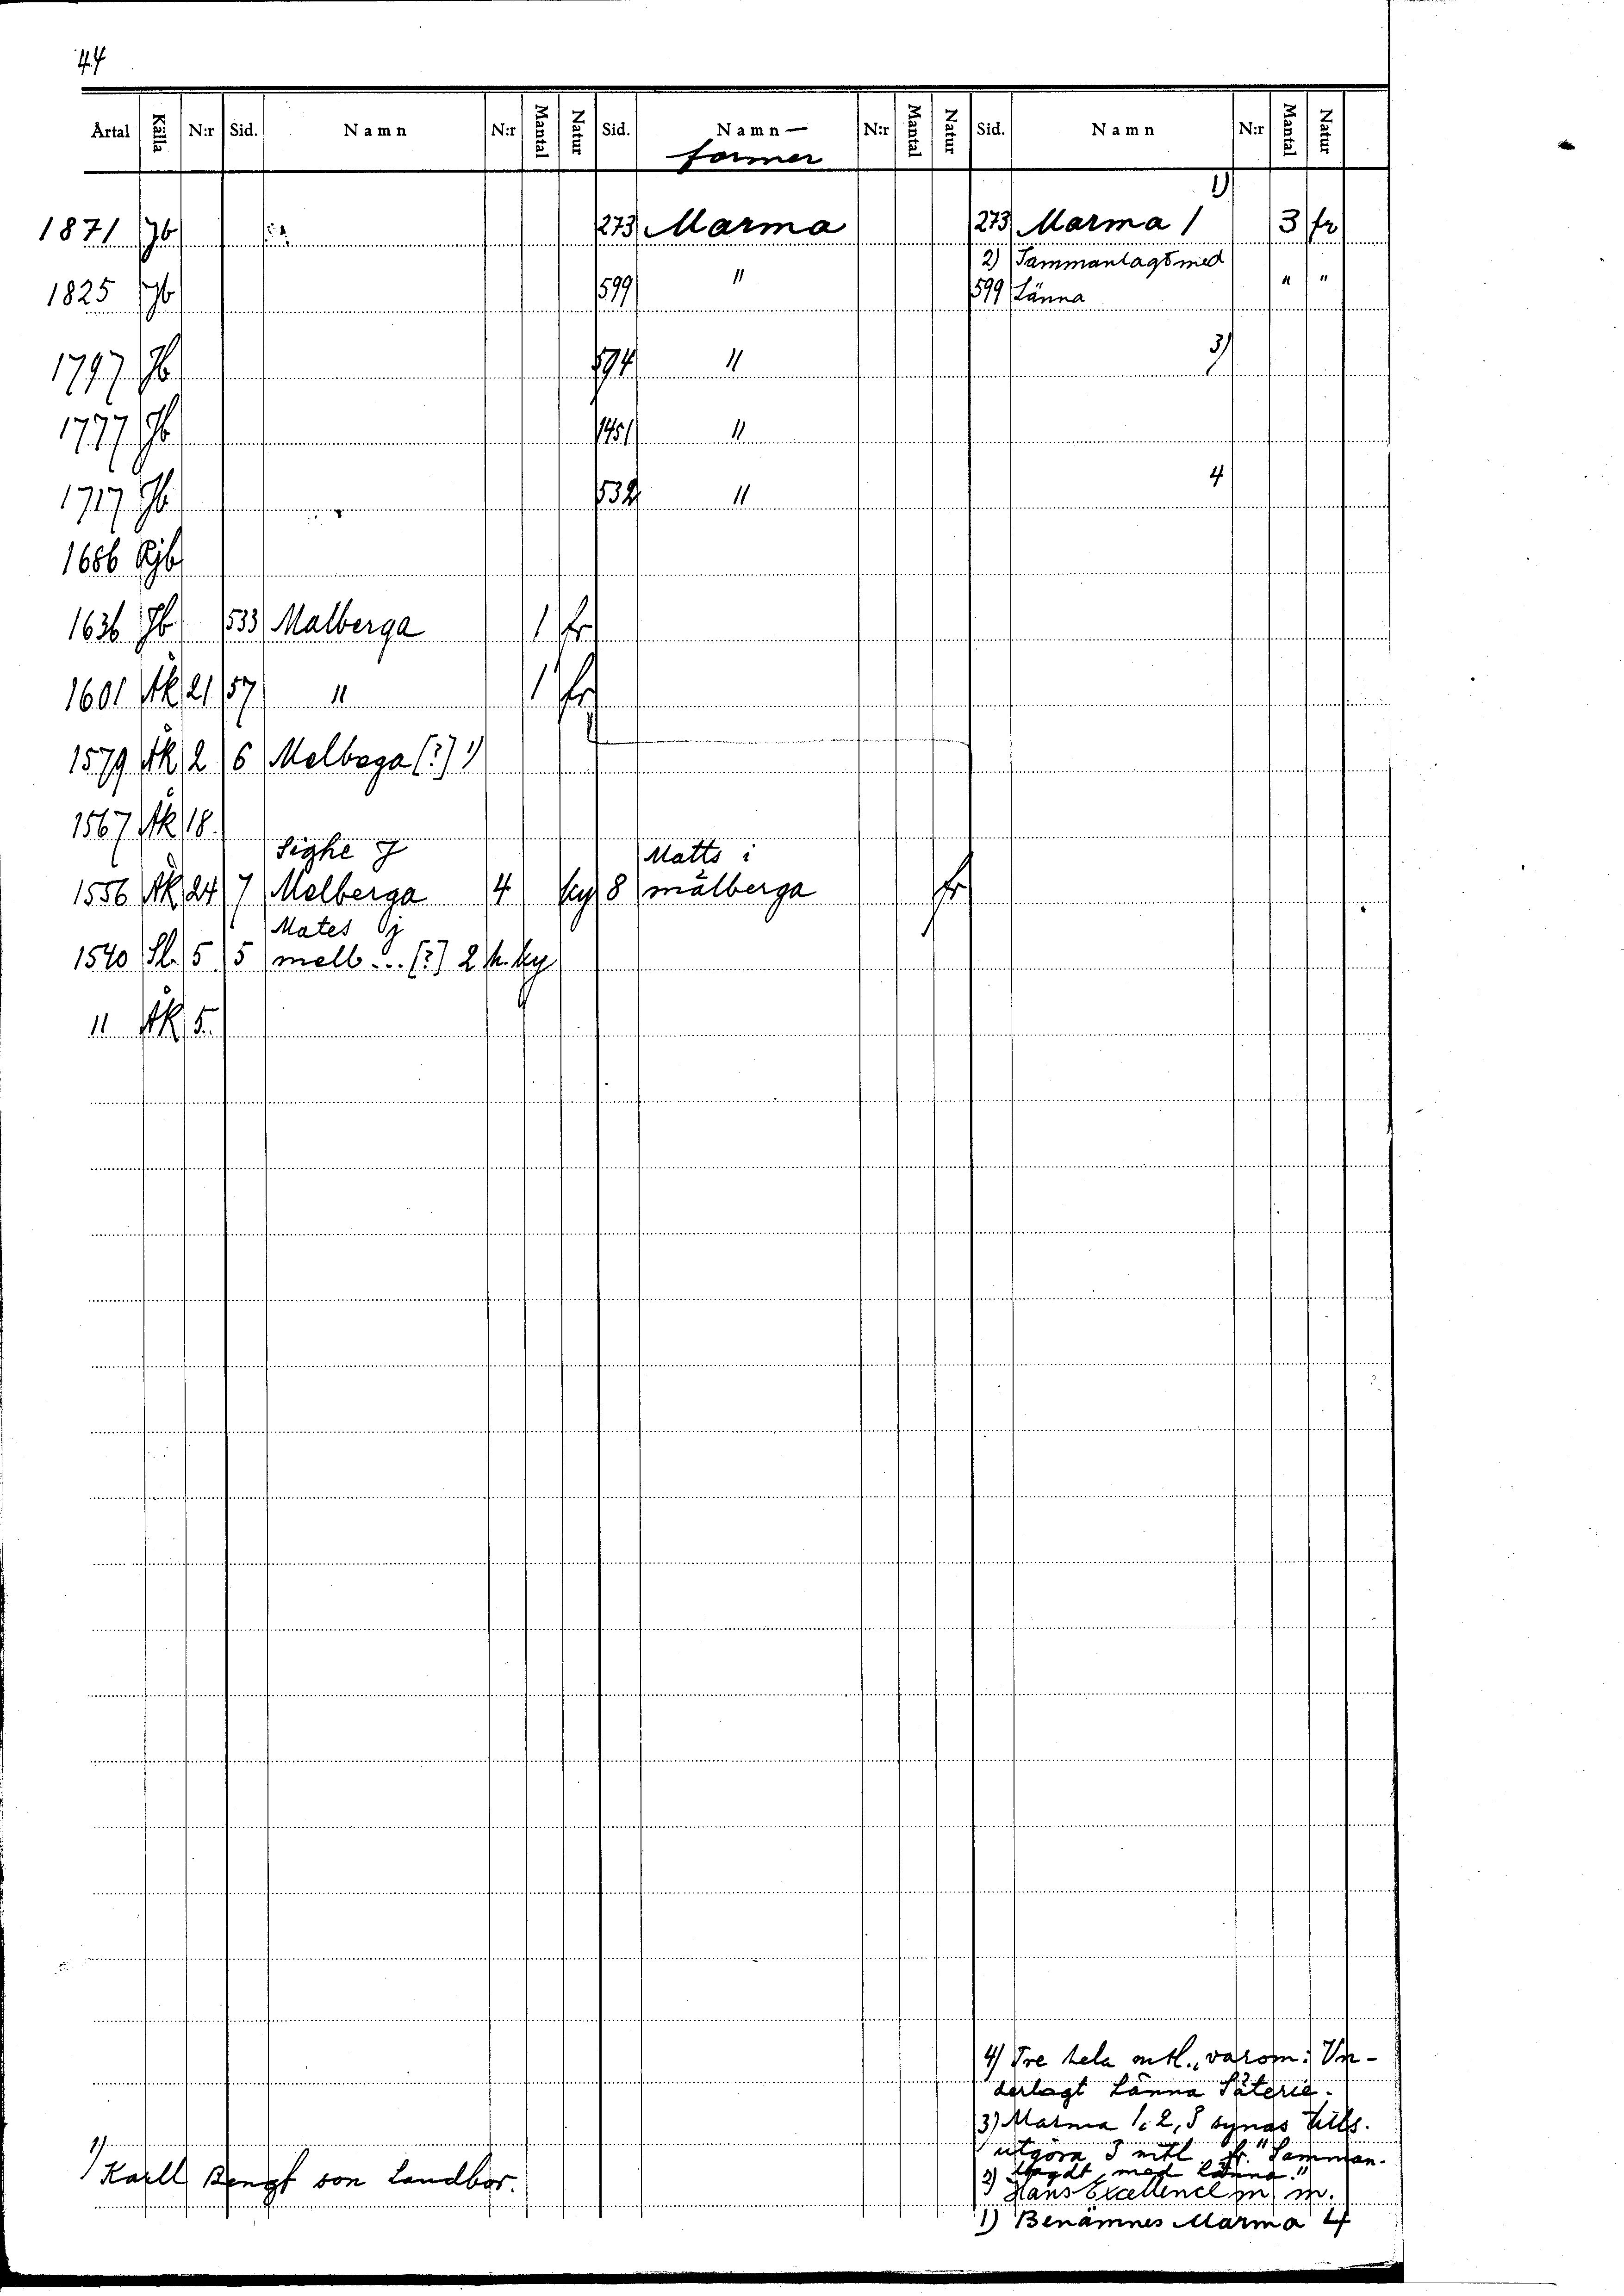 44
Årtal Källa N:r Sid. Namn N:r Mantal Natur Sid. Namn — N:r Mantal Natur Sid. Namn N:r Mantal Natur
former
1)
1871 Jb 273 Marma 273 Marma 1 3 fr
2) Sammanlagt med
1825 Jb 599 " 599 Länna " "
1797 Jb 594 " 3)
1777 Jb 1451 "
1717 Jb 532 " 4
1686 Rjb
1636 Jb 533 Malberga 1 fr
1601 Åk 21 57 " 1 fr
1579 Åk 2 6 Melboga (?) 1)
1567 Åk 18
Sighe J Matts i
1556 Åk 24 7 Melberga 4 ky 8 mälberga fr
Mates j
1540 Sl. 5 5 melb... (?) 2 h. ky
" Åk 5
4) Tre hela mtl., varom: Un-
derlagt Länna Säterie.
3) Marma 1, 2, 3 synas tills.
utgöra 3 mtl fr. "Samman-
lagdt med länna."
2) Hans Excellence m m.
1) Benämnes Marma 4
1) Karll Bengt son Landbor.